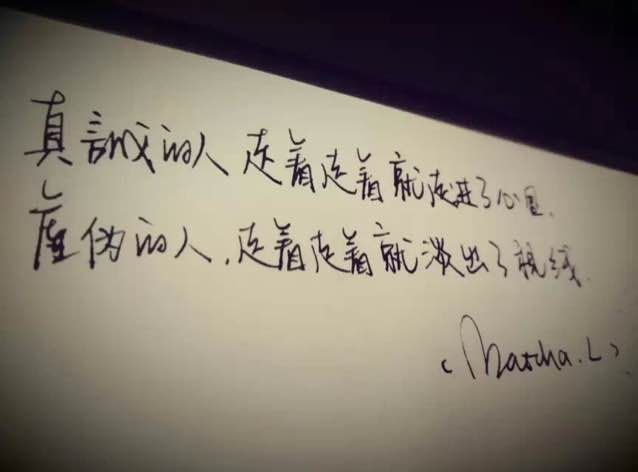 真誠的人 走着走着就走进了心里.
虚伪的人,走着走着就淡出了视线.
(Marcha.L)